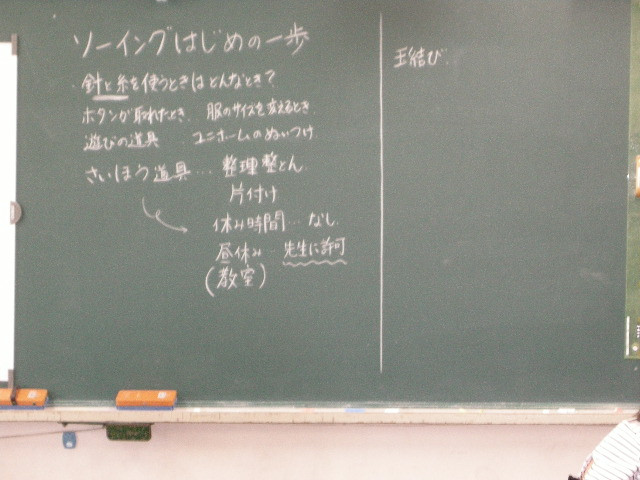 ソーイングはじめの一歩
・針と糸を使うときはどんなとき?
ボタンが取れたとき、 服のサイズを変えるとき
遊びの道具、 ユニホームのぬいつけ
さいほう道具… 整理整とん
片付け
休み時間…なし
昼休み…先生に許可
(教室)
玉結び